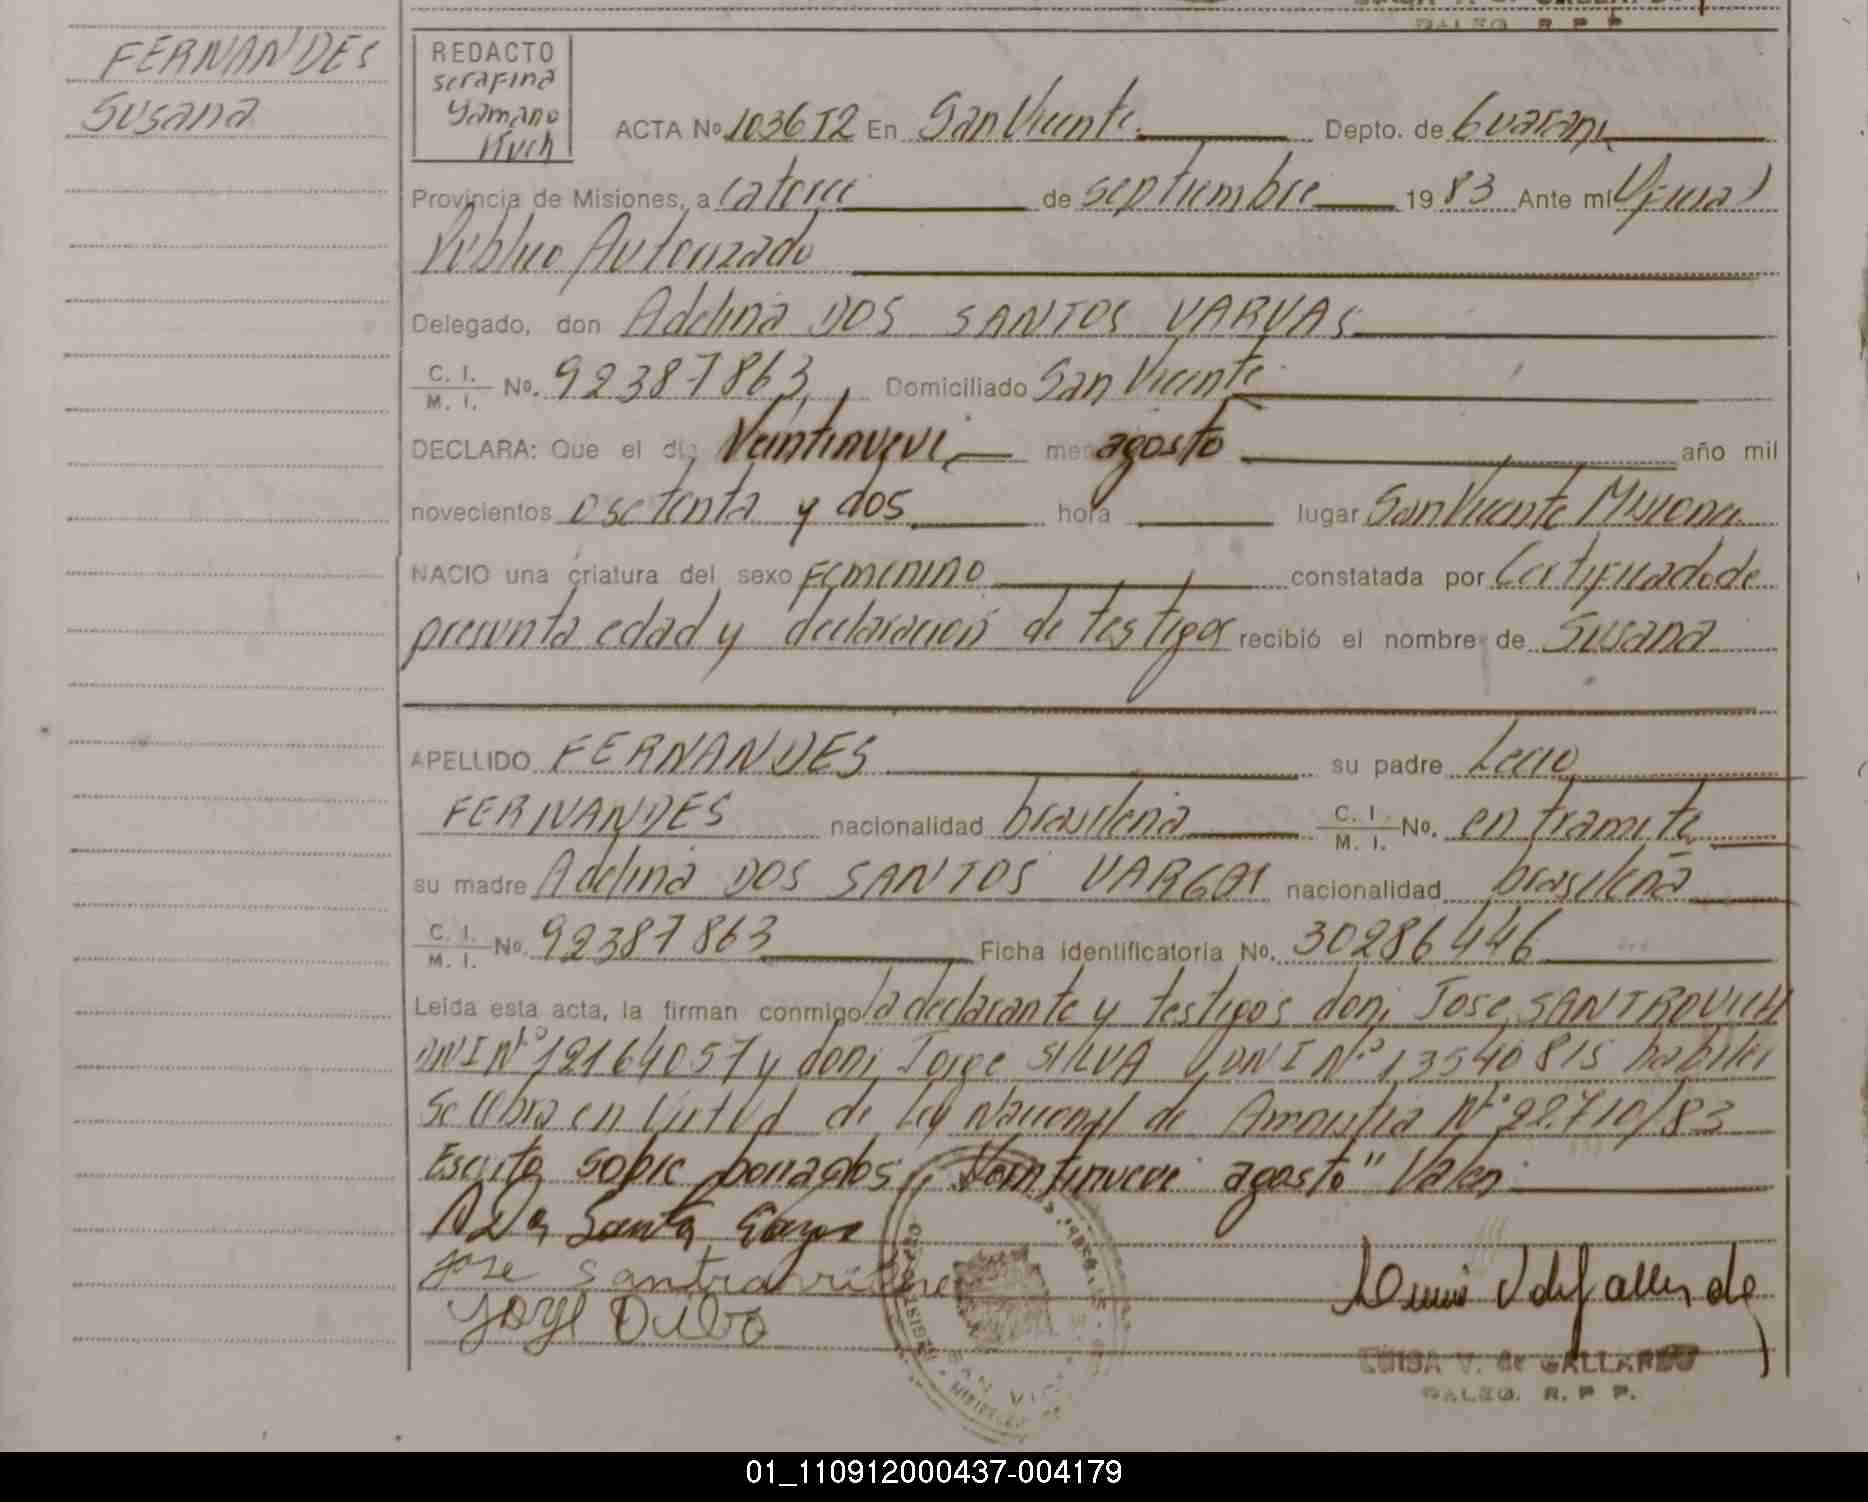 FERNANDES
Susana
REDACTO
serafina
Yamano
Kuch
ACTA Nº 1036 T2 En San Vicente Depto. de Guarani
Provincia de Misiones, a catorce de septiembre 1983 Ante mi Oficial
Publico Autorizado
Delegado, don Adelina DOS SANTOS VARVAS
C. I.
M. I. No. 92387863 Domiciliado San Vicente
DECLARA: Que el día Veintinueve mes agosto año mil
novecientos osetenta y dos hora lugar San Vicente Misiones
NACIO una criatura del sexo FEmENINO constatada por Certificado de
presunta edad y declaracion de testigos recibió el nombre de Susana
APELLIDO FERNANDES su padre Lecio
FERNANDES nacionalidad brasileña C. I.
M. I. No. en tramite
su madre Adelina DOS SANTOS VARGAS nacionalidad brasileña
C. I.
M. I. No. 92387863 Ficha identificatoria No. 30286446
Leida esta acta, la firman conmigo la declarante y testigos don; Jose SANTROVICH
DNI Nº 12164057 y don; Jorge SILVA DNI Nº 13540815 habiles
Se labra en Virtud de Ley Nacional de Amnistia Nº 22.710/83
Escrito sobre borrados "Veintinueve agosto" Valen
Jose
LUISA V. de GALLARDO
DALEG. R. P. P.
01_110912000437-004179